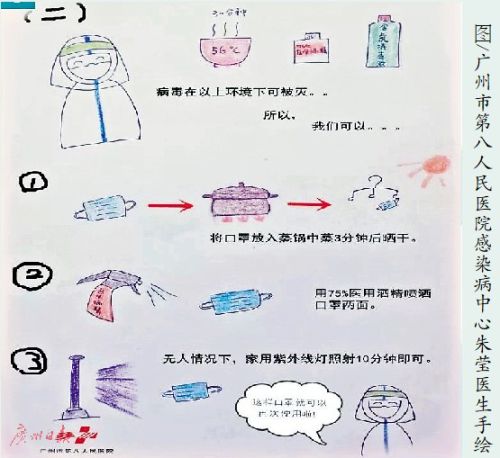 (二)
30分钟
56℃
含氯消毒液
病毒在以上环境下可被灭。。
所以,
我们可以....
①
将口罩放入蒸锅中蒸3分钟后晒干。
②
用75%医用酒精喷洒
口罩两面。
③
无人情况下,家用紫外线灯照射10分钟即可。
这样口罩就可以
再次使用啦!
广州日报
广州市第八人民医院
图/广州市第八人民医院感染病中心朱莹医生手绘